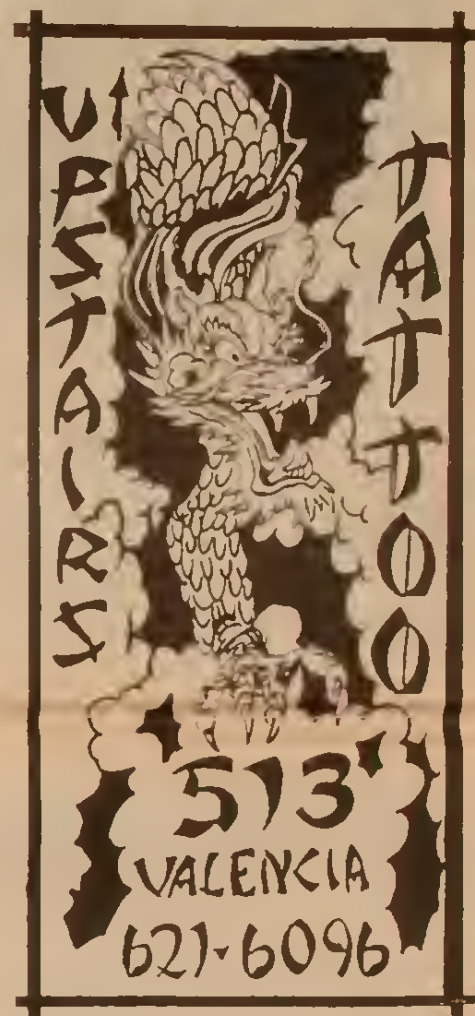 UPSTAIRS
TATTOO
513
VALENCIA
621-6096